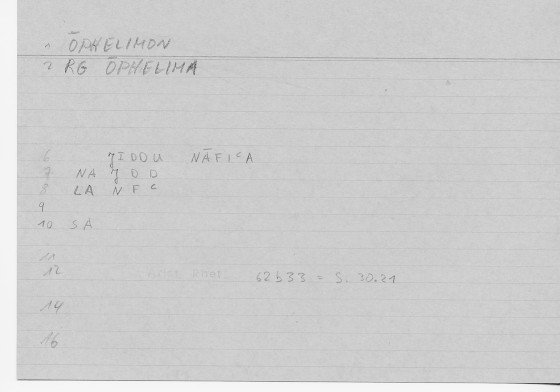 1 ŌPHELIMON
2 RG ŌPHELIMA
6 ǦIDDU NĀFIʿA
7 NA Ǧ D D
8 LA N F ʿ
9
10 SA
11
12 62b33 = S. 30.21
14
16